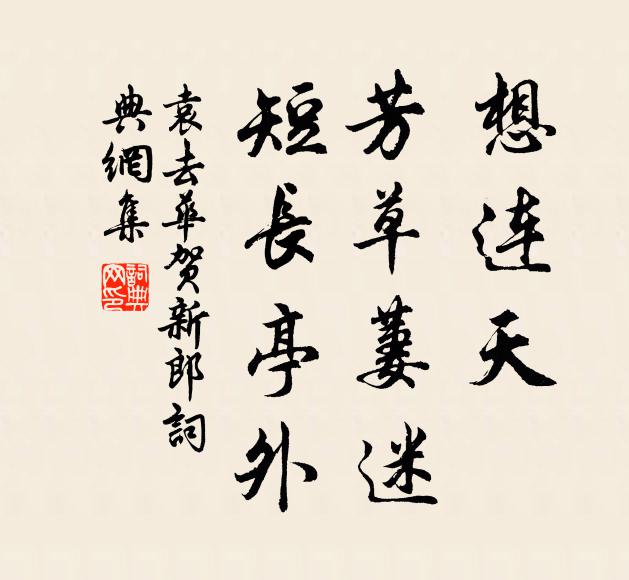 想連天
芳草萋迷
短長亭外
袁去華賀新郎詞
典網集
詞典
网印